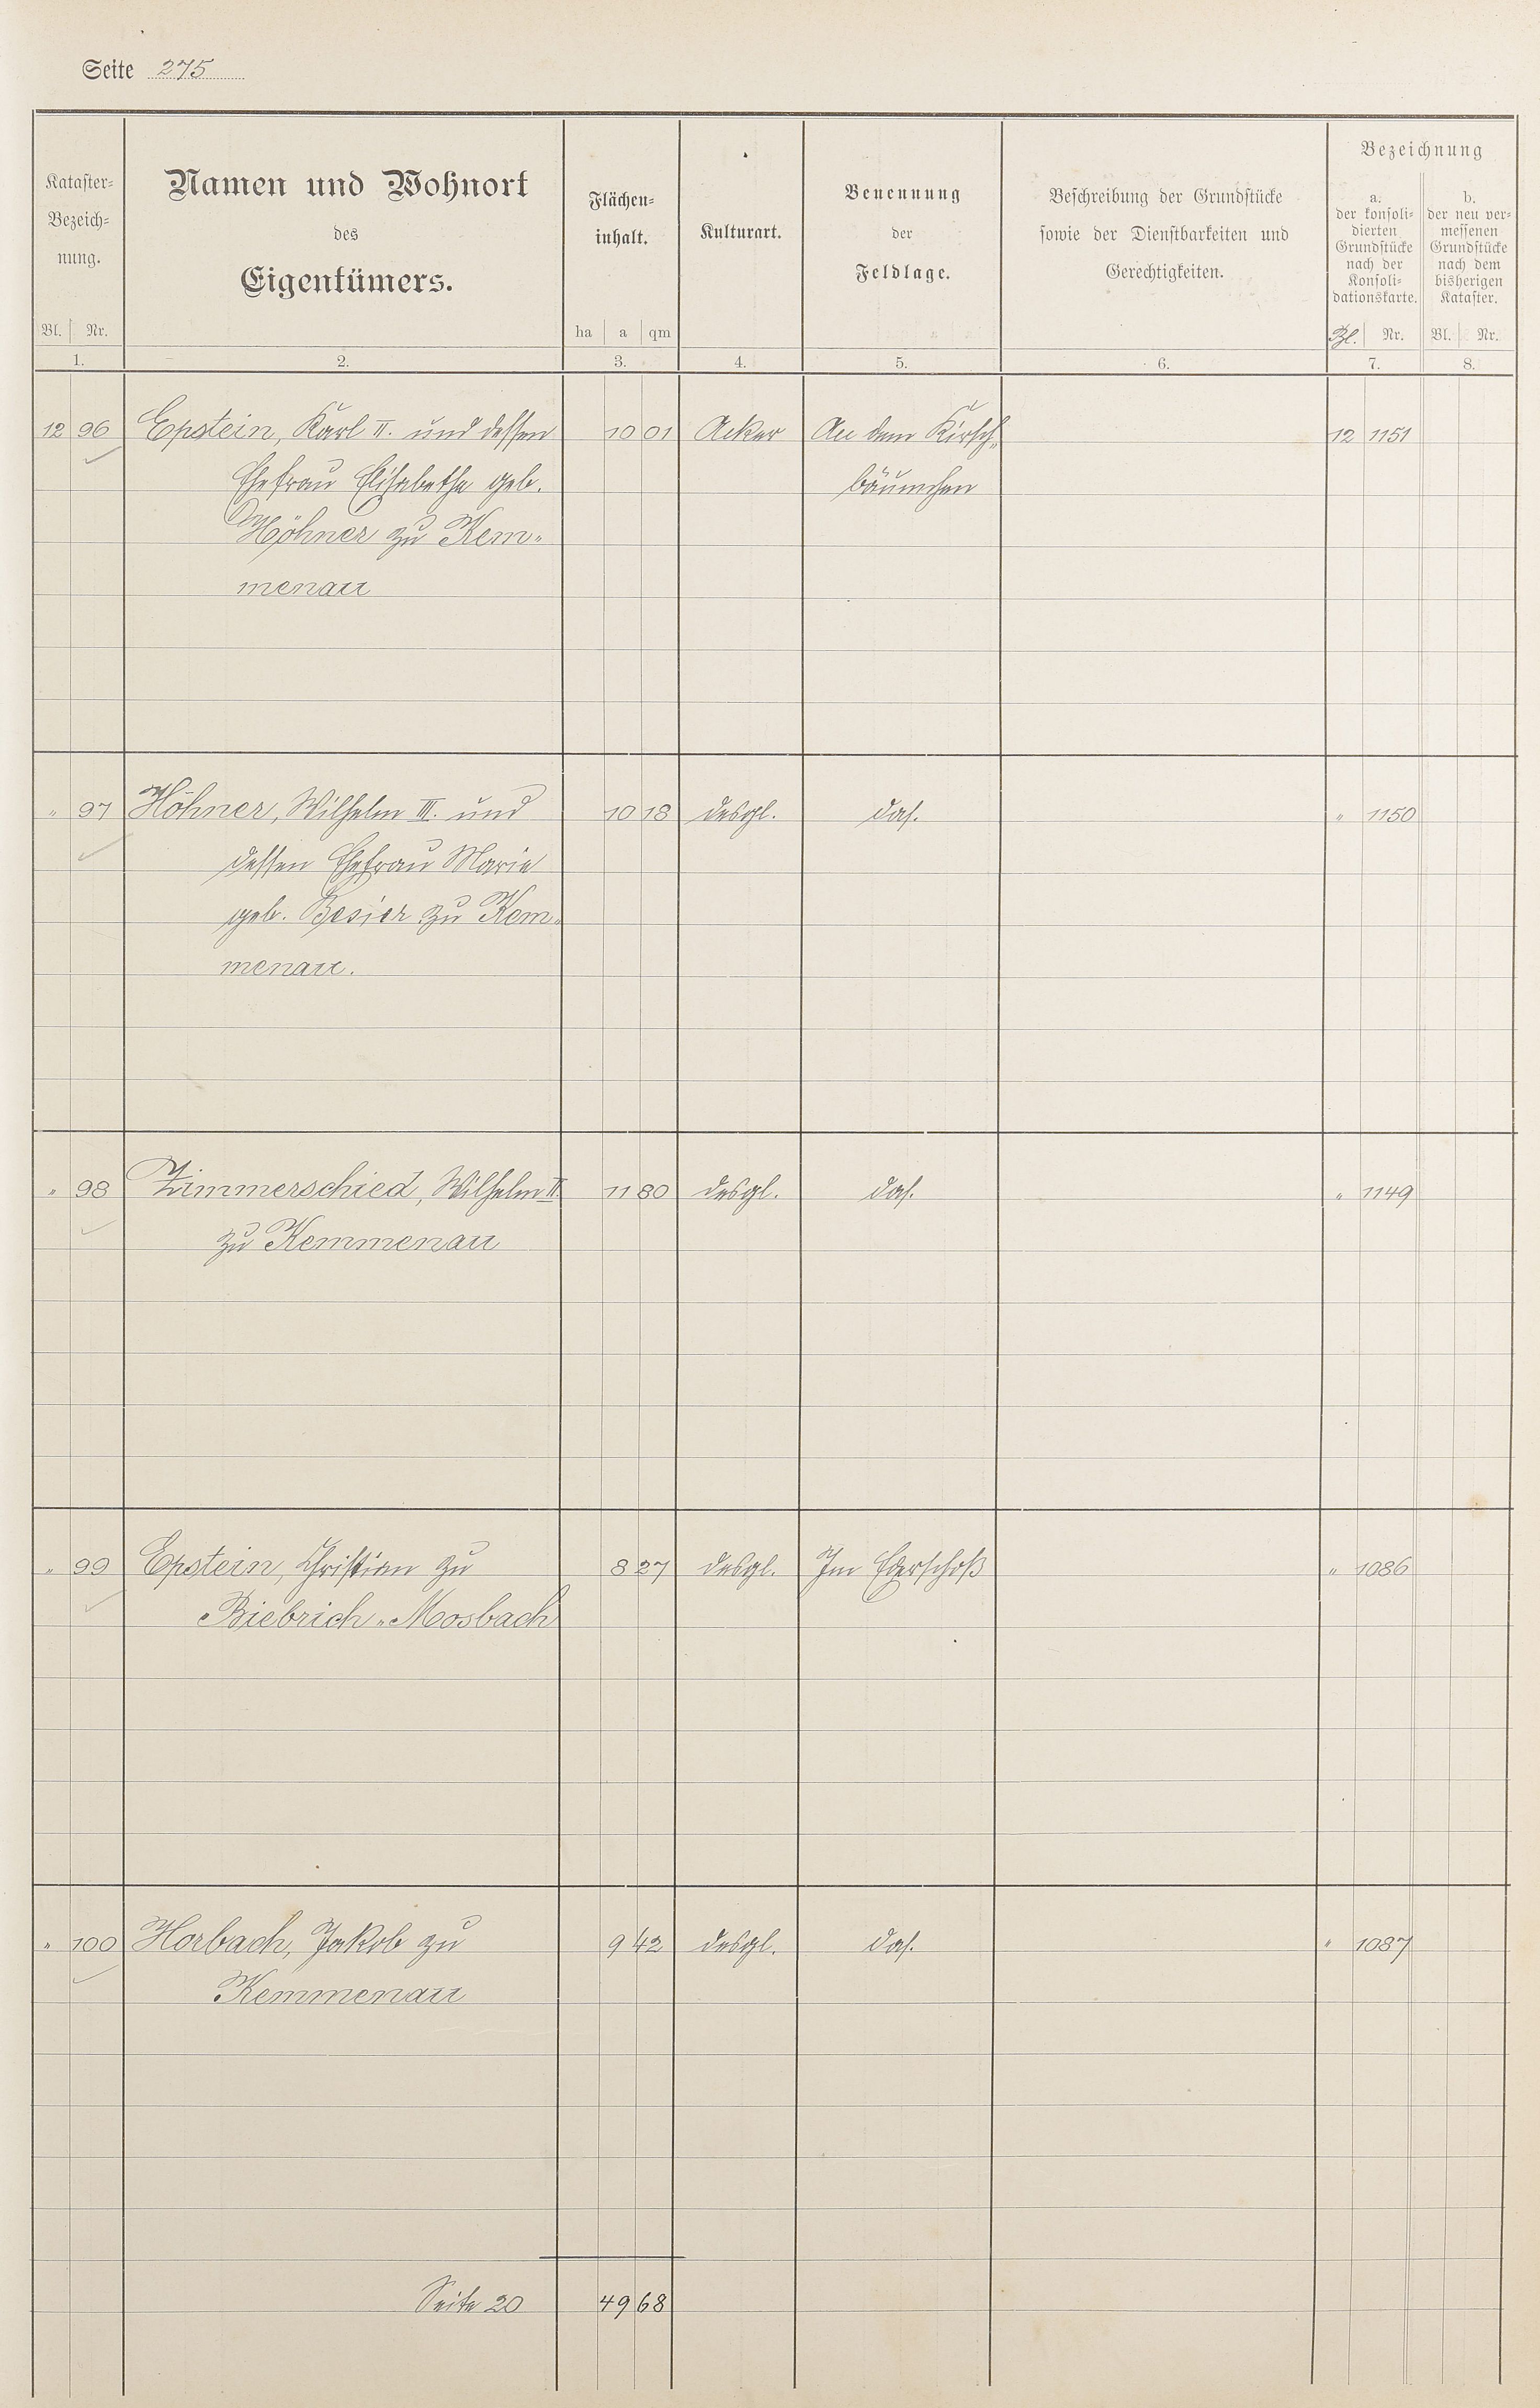 Seite 275
Kataster-
Bezeich-
nung.
Bl. Nr.
1.
Namen und Wohnort
des
Eigentümers.
2.
Flächen-
inhalt.
ha a qm
3.
Kulturart.
4.
Benennung
der
Feldlage.
5.
Beschreibung der Grundstücke
sowie der Dienstbarkeiten und
Gerechtigkeiten.
6.
Bezeichnung
a.
der konsoli-
dierten
Grundstücke
nach der
Konsoli-
dationskarte.
Bl. Nr.
7.
b.
der neu ver-
messenen
Grundstücke
nach dem
bisherigen
Kataster.
Bl. Nr.
8.
12 96 Epstein, Karl II. und dessen 10 01 Acker An dem Kirsch- 12 1151
Ehefrau Elisabethe geb. bäumchen
Höhner zu Kem-
menau
" 97 Höhner, Wilhelm III. und 10 18 desgl. das. " 1150
dessen Ehefrau Marie
geb. Besier zu Kem-
menau.
" 98 Zimmerschied, Wilhelm II. 11 80 desgl. das. " 1149
zu Kemmenau
" 99 Epstein, Christian zu 8 27 desgl. Im " 1086
Biebrich-Mosbach
" 100 Horbach, Jakob zu 9 42 desgl. das. " 1087
Kemmenau
Seite 20 49 68